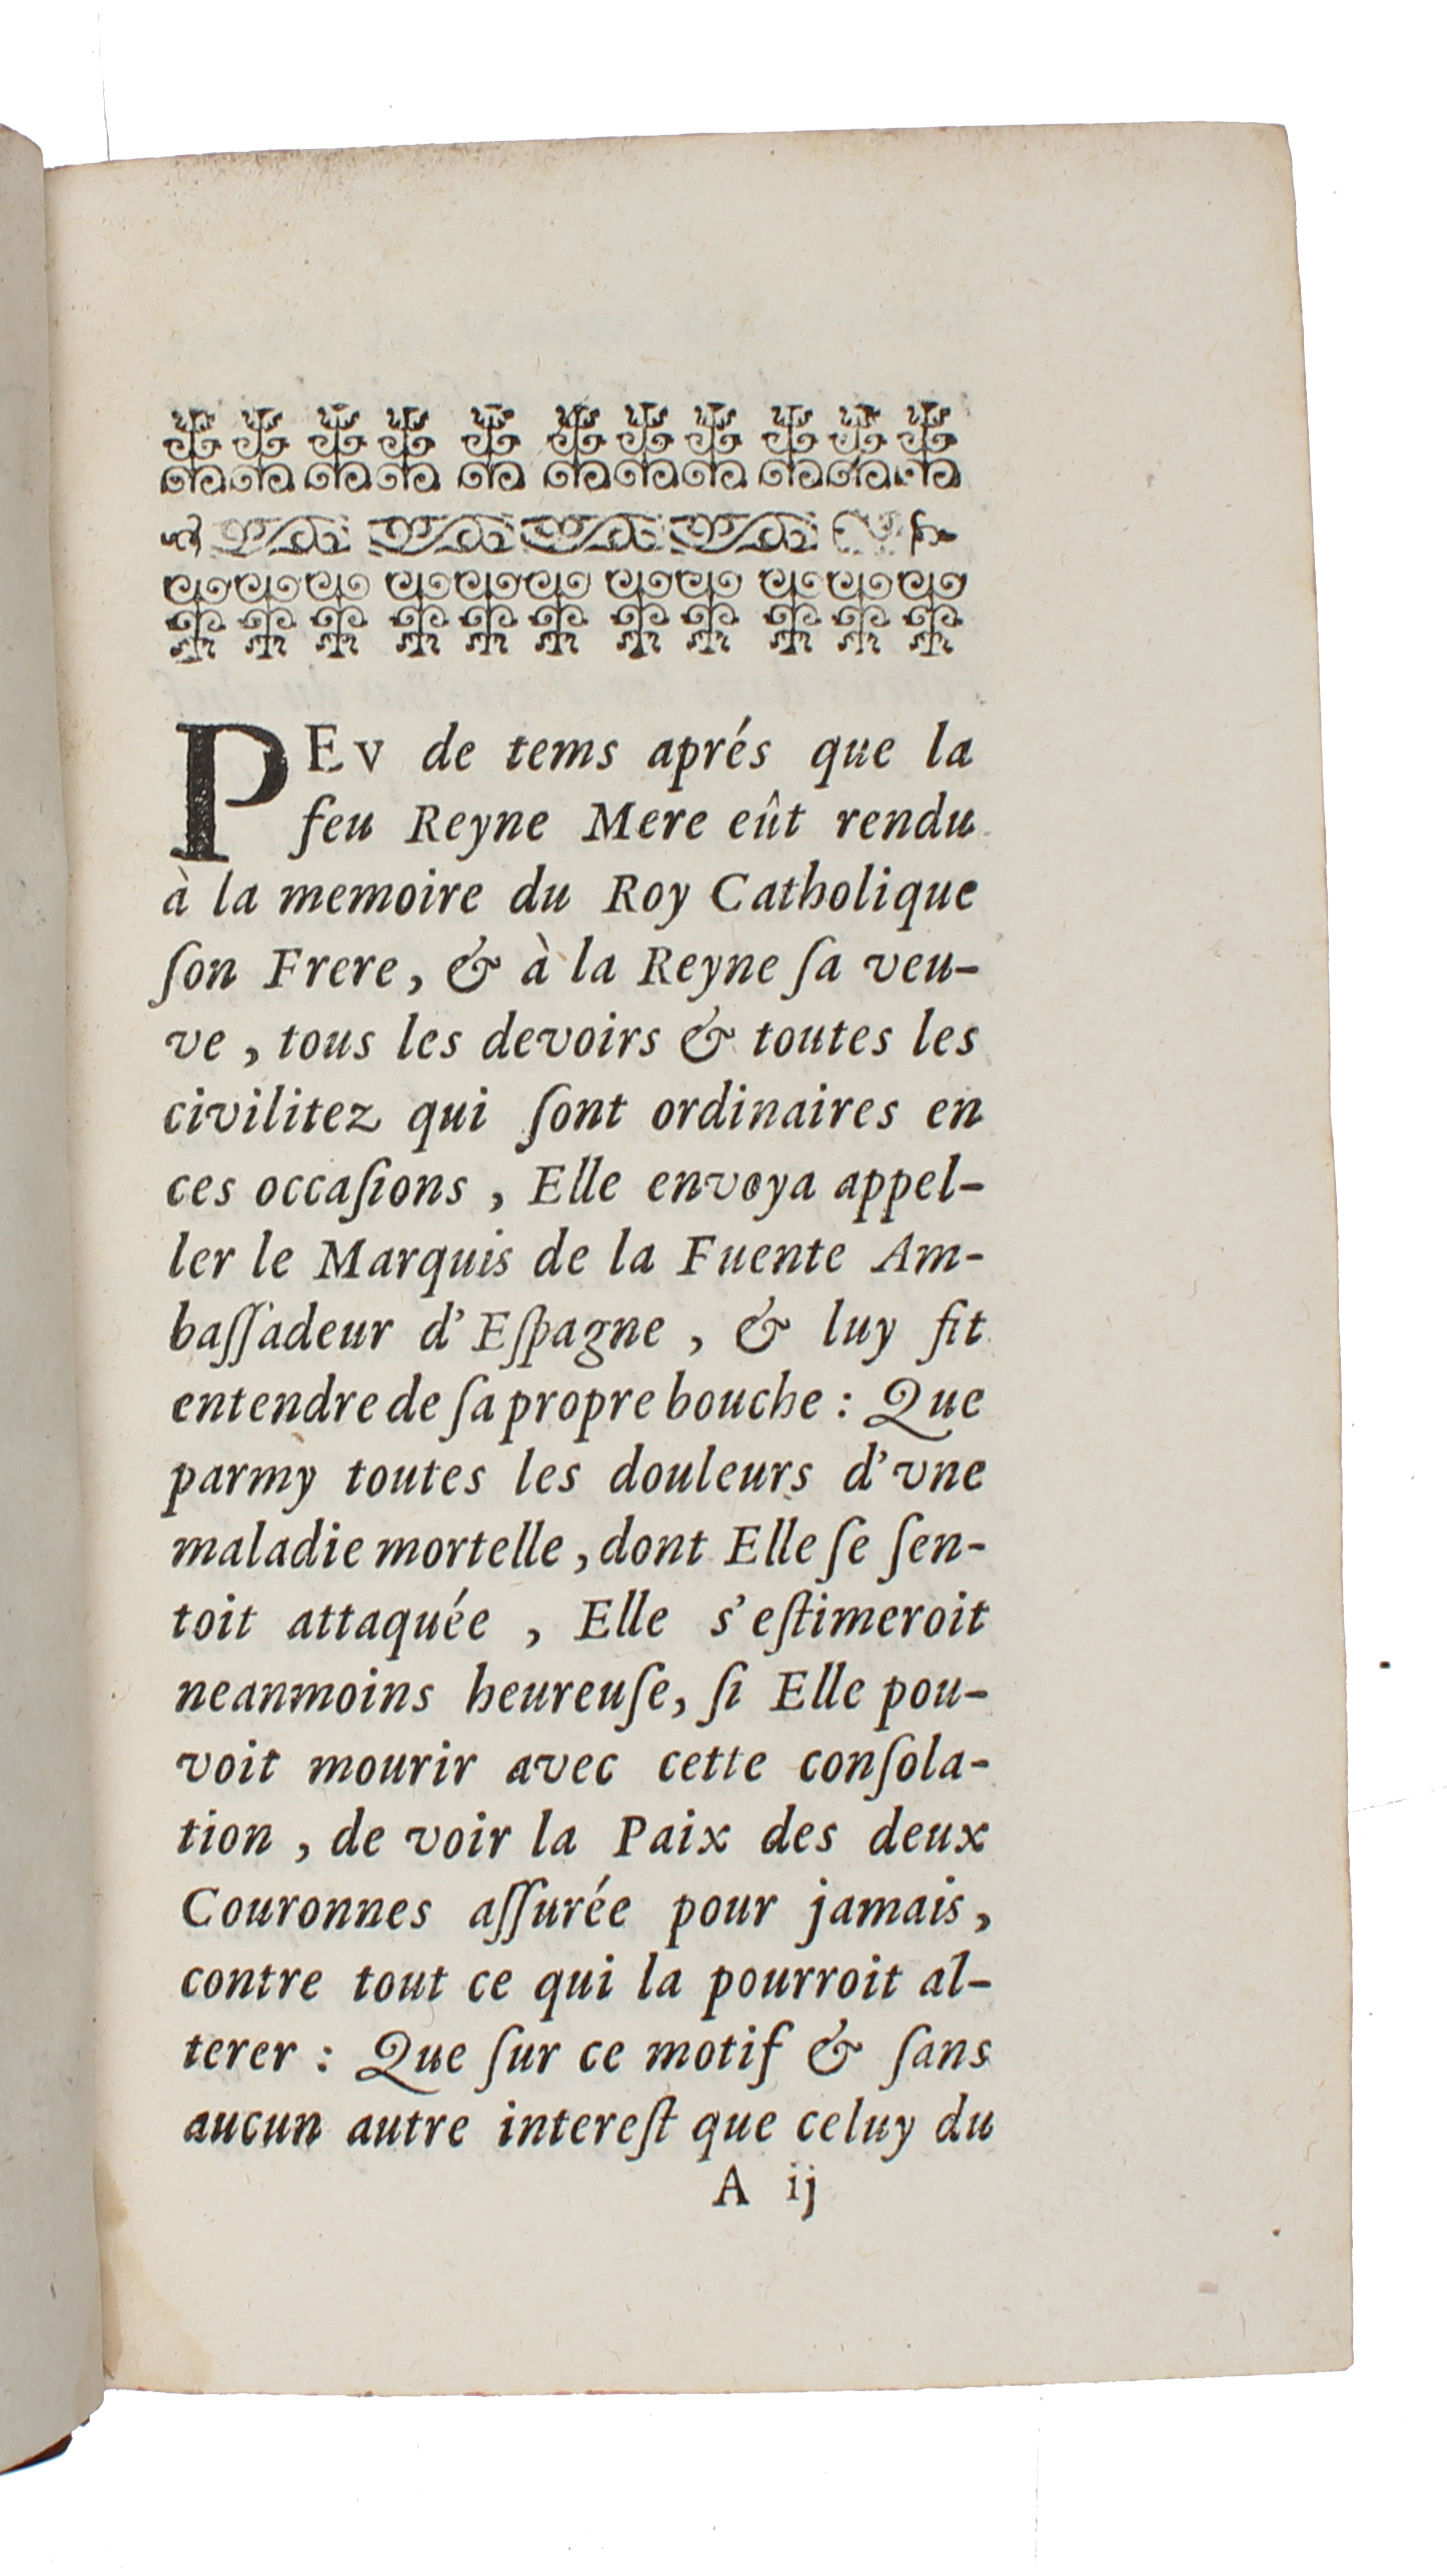 PEv de tems aprés que la
feu Reyne Mere eût rendu
à la memoire du Roy Catholique
ſon Frere, & à la Reyne ſa veu-
ve, tous les devoirs & toutes les
civilitez qui ſont ordinaires en
ces occaſions, Elle envoya appel-
ler le Marquis de la Fuente Am-
baſſadeur d'Eſpagne, & luy fit
entendre de ſa propre bouche : Que
parmy toutes les douleurs d'vne
maladie mortelle, dont Elle ſe ſen-
toit attaquée, Elle s'eſtimeroit
neanmoins heureuſe, ſi Elle pou-
voit mourir avec cette conſola-
tion, de voir la Paix des deux
Couronnes aſſurée pour jamais,
contre tout ce qui la pourroit al-
terer : Que ſur ce motif & ſans
aucun autre intereſt que celuy du
A ij